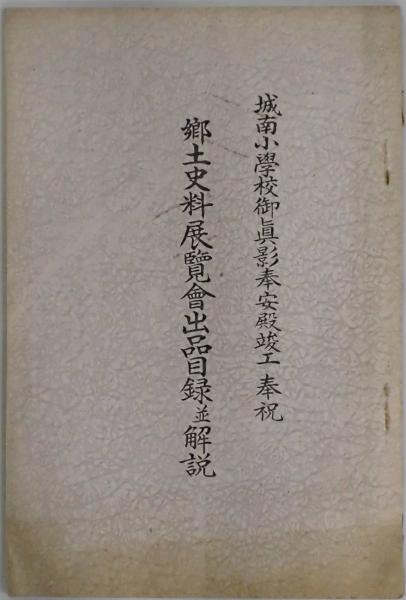 城南小學校御眞影奉安殿竣工奉祝
鄉土史料展覽會出品目録並解説